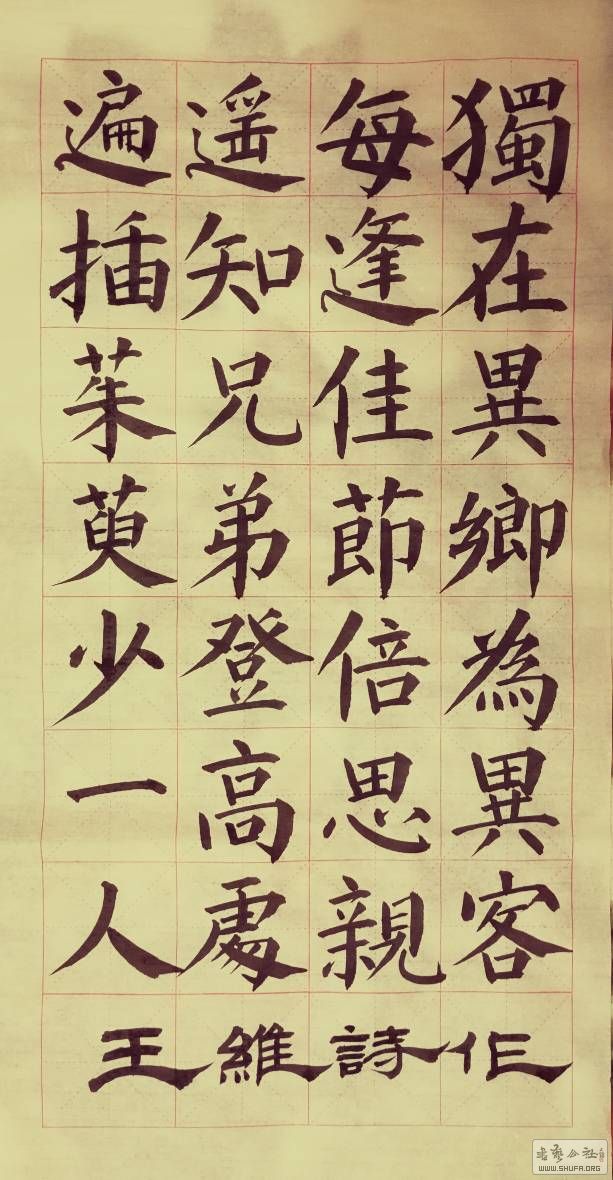 獨在異鄉為異客
每逢佳節倍思親
遥知兄弟登高處
遍插茱萸少一人
王維詩作
書藝公社
WWW.SHUFA.ORG